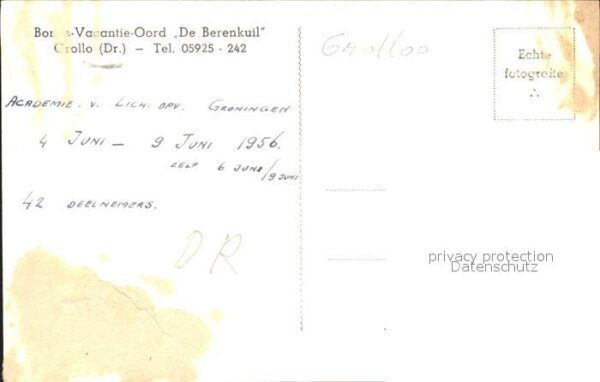 Bonds-Vacantie-Oord „De Berenkuil"
Grollo (Dr.) – Tel. 05925 - 242
Grolloo
Echte
fotografie
ACADEMIE. V. LICH. OPV. GRONINGEN
4 JUNI – 9 JUNI 1956.
ZELF 6 JUNI/9 JUNI
42 DEELNEMERS.
DR
privacy protection
Datenschutz